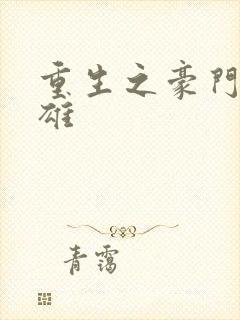 重生之豪門
雄
青靄